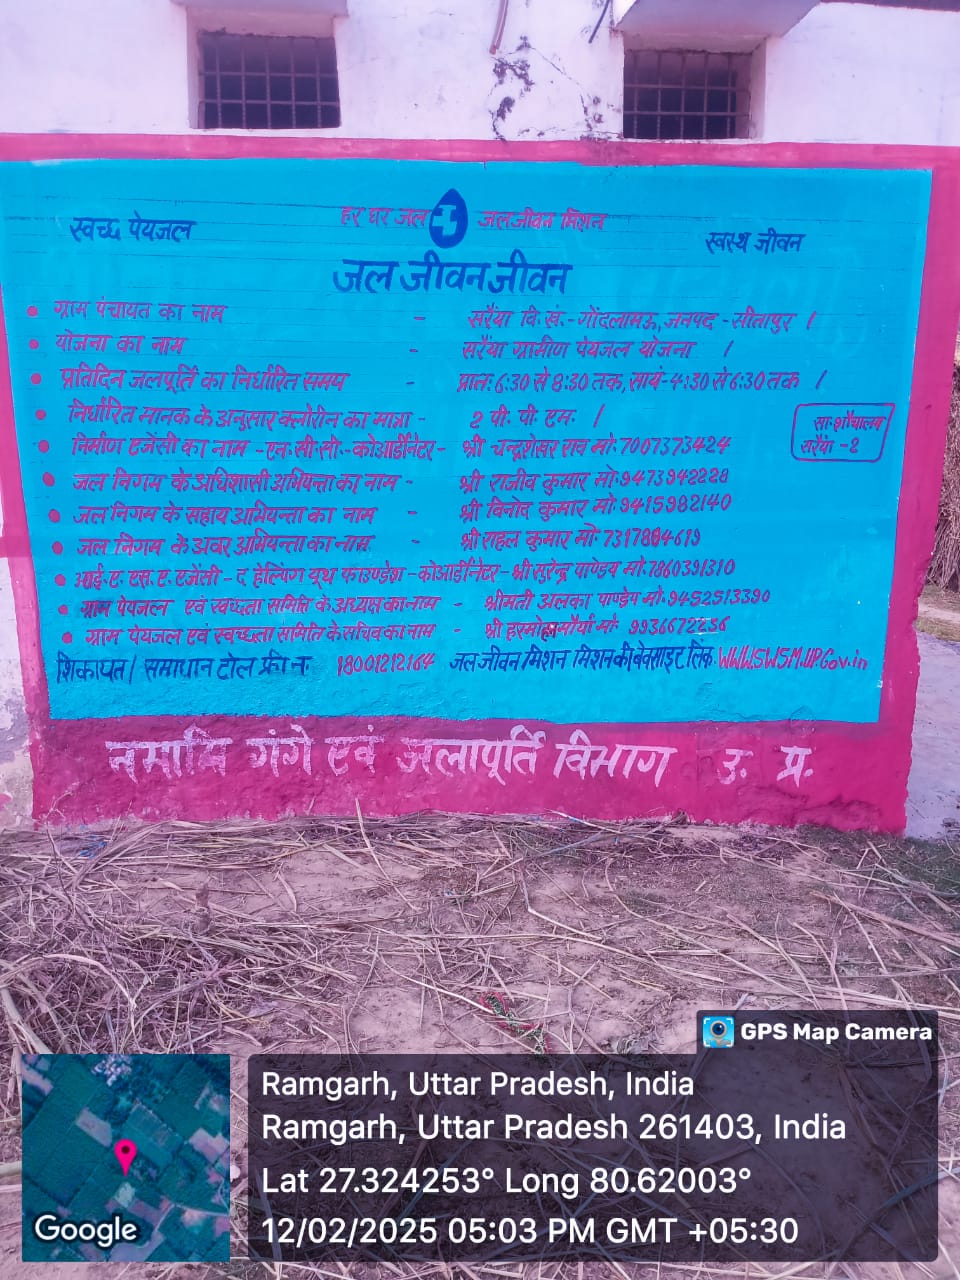 हर घर जल जल जीवन मिशन
स्वच्छ पेयजल
स्वस्थ जीवन
जल जीवन जीवन
• ग्राम पंचायत का नाम - सरैंया वि.खं.-गोंदलामऊ, जनपद-सीतापुर ।
• योजना का नाम - सरैंया ग्रामीण पेयजल योजना ।
• प्रतिदिन जलपूर्ति का निर्धारित समय - प्रातः 6:30 से 8:30 तक, सायं-4:30 से 6:30 तक ।
• निर्धारित मानक के अनुसार क्लोरीन का मात्रा - 2 पी. पी. एम. ।
सा. शौचालय
सरैंया -2
• निर्माण एजेंसी का नाम - एन.सी.सी.-कोआर्डीनेटर- श्री चन्द्रशेखर राव मो. 7007373424
• जल निगम के अधिशासी अभियन्ता का नाम - श्री राजीव कुमार मो. 9473942228
• जल निगम के सहाय अभियन्ता का नाम - श्री विनोद कुमार मो. 9415982140
• जल निगम के अवर अभियन्ता का नाम - श्री राहुल कुमार मो. 7317884619
• आई.ए.एस.ए. एजेंसी - द हेल्पिंग यूथ फाउण्डेशन - कोआर्डीनेटर - श्री सुरेन्द्र पाण्डेय मो. 7860391310
• ग्राम पेयजल एवं स्वच्छता समिति के अध्यक्ष का नाम - श्रीमती अलका पाण्डेय मो. 9452513390
• ग्राम पेयजल एवं स्वच्छता समिति के सचिव का नाम - श्री हरमोहन मौर्या मो. 9936672236
शिकायत / समाधान टोल फ्री न. 18001212164 जल जीवन मिशन मिशन की वेबसाइट लिंक. WWW.SWSM.UP.Gov.in
नमामि गंगे एवं जलापूर्ति विभाग उ. प्र.
GPS Map Camera
Ramgarh, Uttar Pradesh, India
Ramgarh, Uttar Pradesh 261403, India
Lat 27.324253° Long 80.62003°
12/02/2025 05:03 PM GMT +05:30
Google